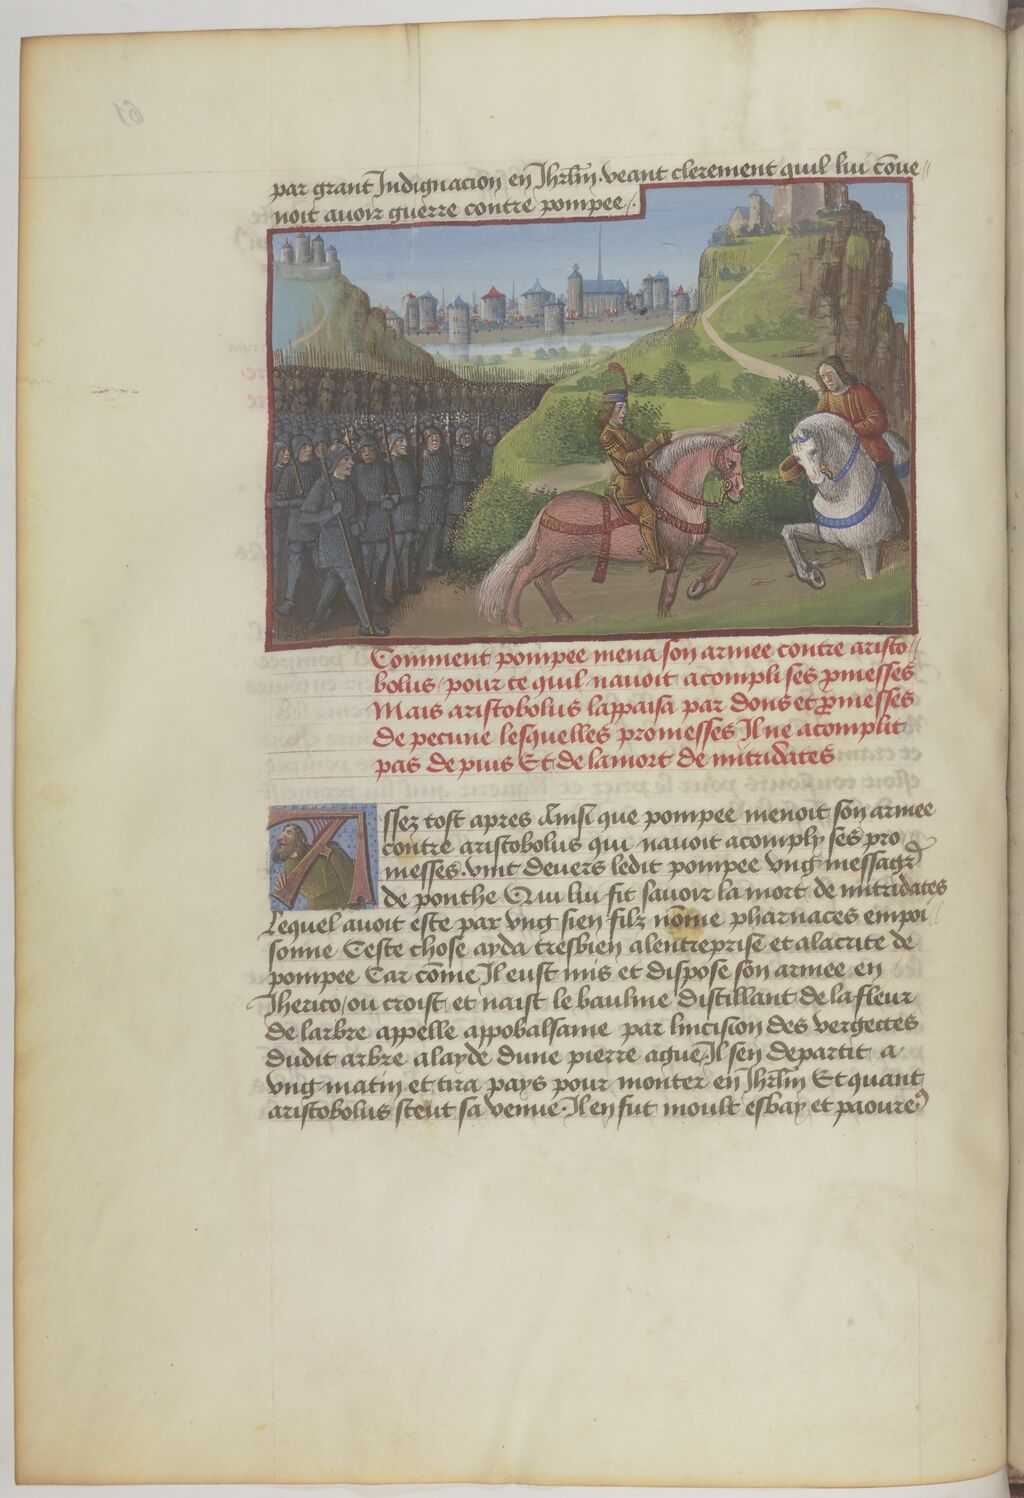 par grant Indignacion en Jhrlm̄ veant clerement quil lui cōue //
noit auoir guerre contre pompee /.
Comment pompee mena son armee contre aristo //
bolus / pour ce quil nauoit acompli ses ꝓmesses
Mais aristobolus lappaisa par dons et ꝓmesses
de pecune lesquelles promesses Il ne acomplit
pas depuis Et de la mort de mitridates
Assez tost apres Ainsi que pompee menoit son armee
contre aristobolus qui nauoit acomply ses pro
messes. vint deuers ledit pompee vng messagr̄
de ponthe Qui lui fit sauoir la mort de mitridates
Lequel auoit este par vng sien filz nōme pharnaces empoi //
sonne Ceste chose ayda tresbien a lentreprise et alacrite de
pompee Car cōme Il eust mis et dispose son armee en
Jherico / ou croist et naist le baulme distillant de la fleur
de larbre appelle appobalsame par lincision des vergectes
dudit arbre a layde dune pierre ague. Il sen departit a
vng matin et tira pays pour monter en Jhrlm̄ Et quant
aristobolus sceut sa venue. Il en fut moult esbay et paoureꝰ